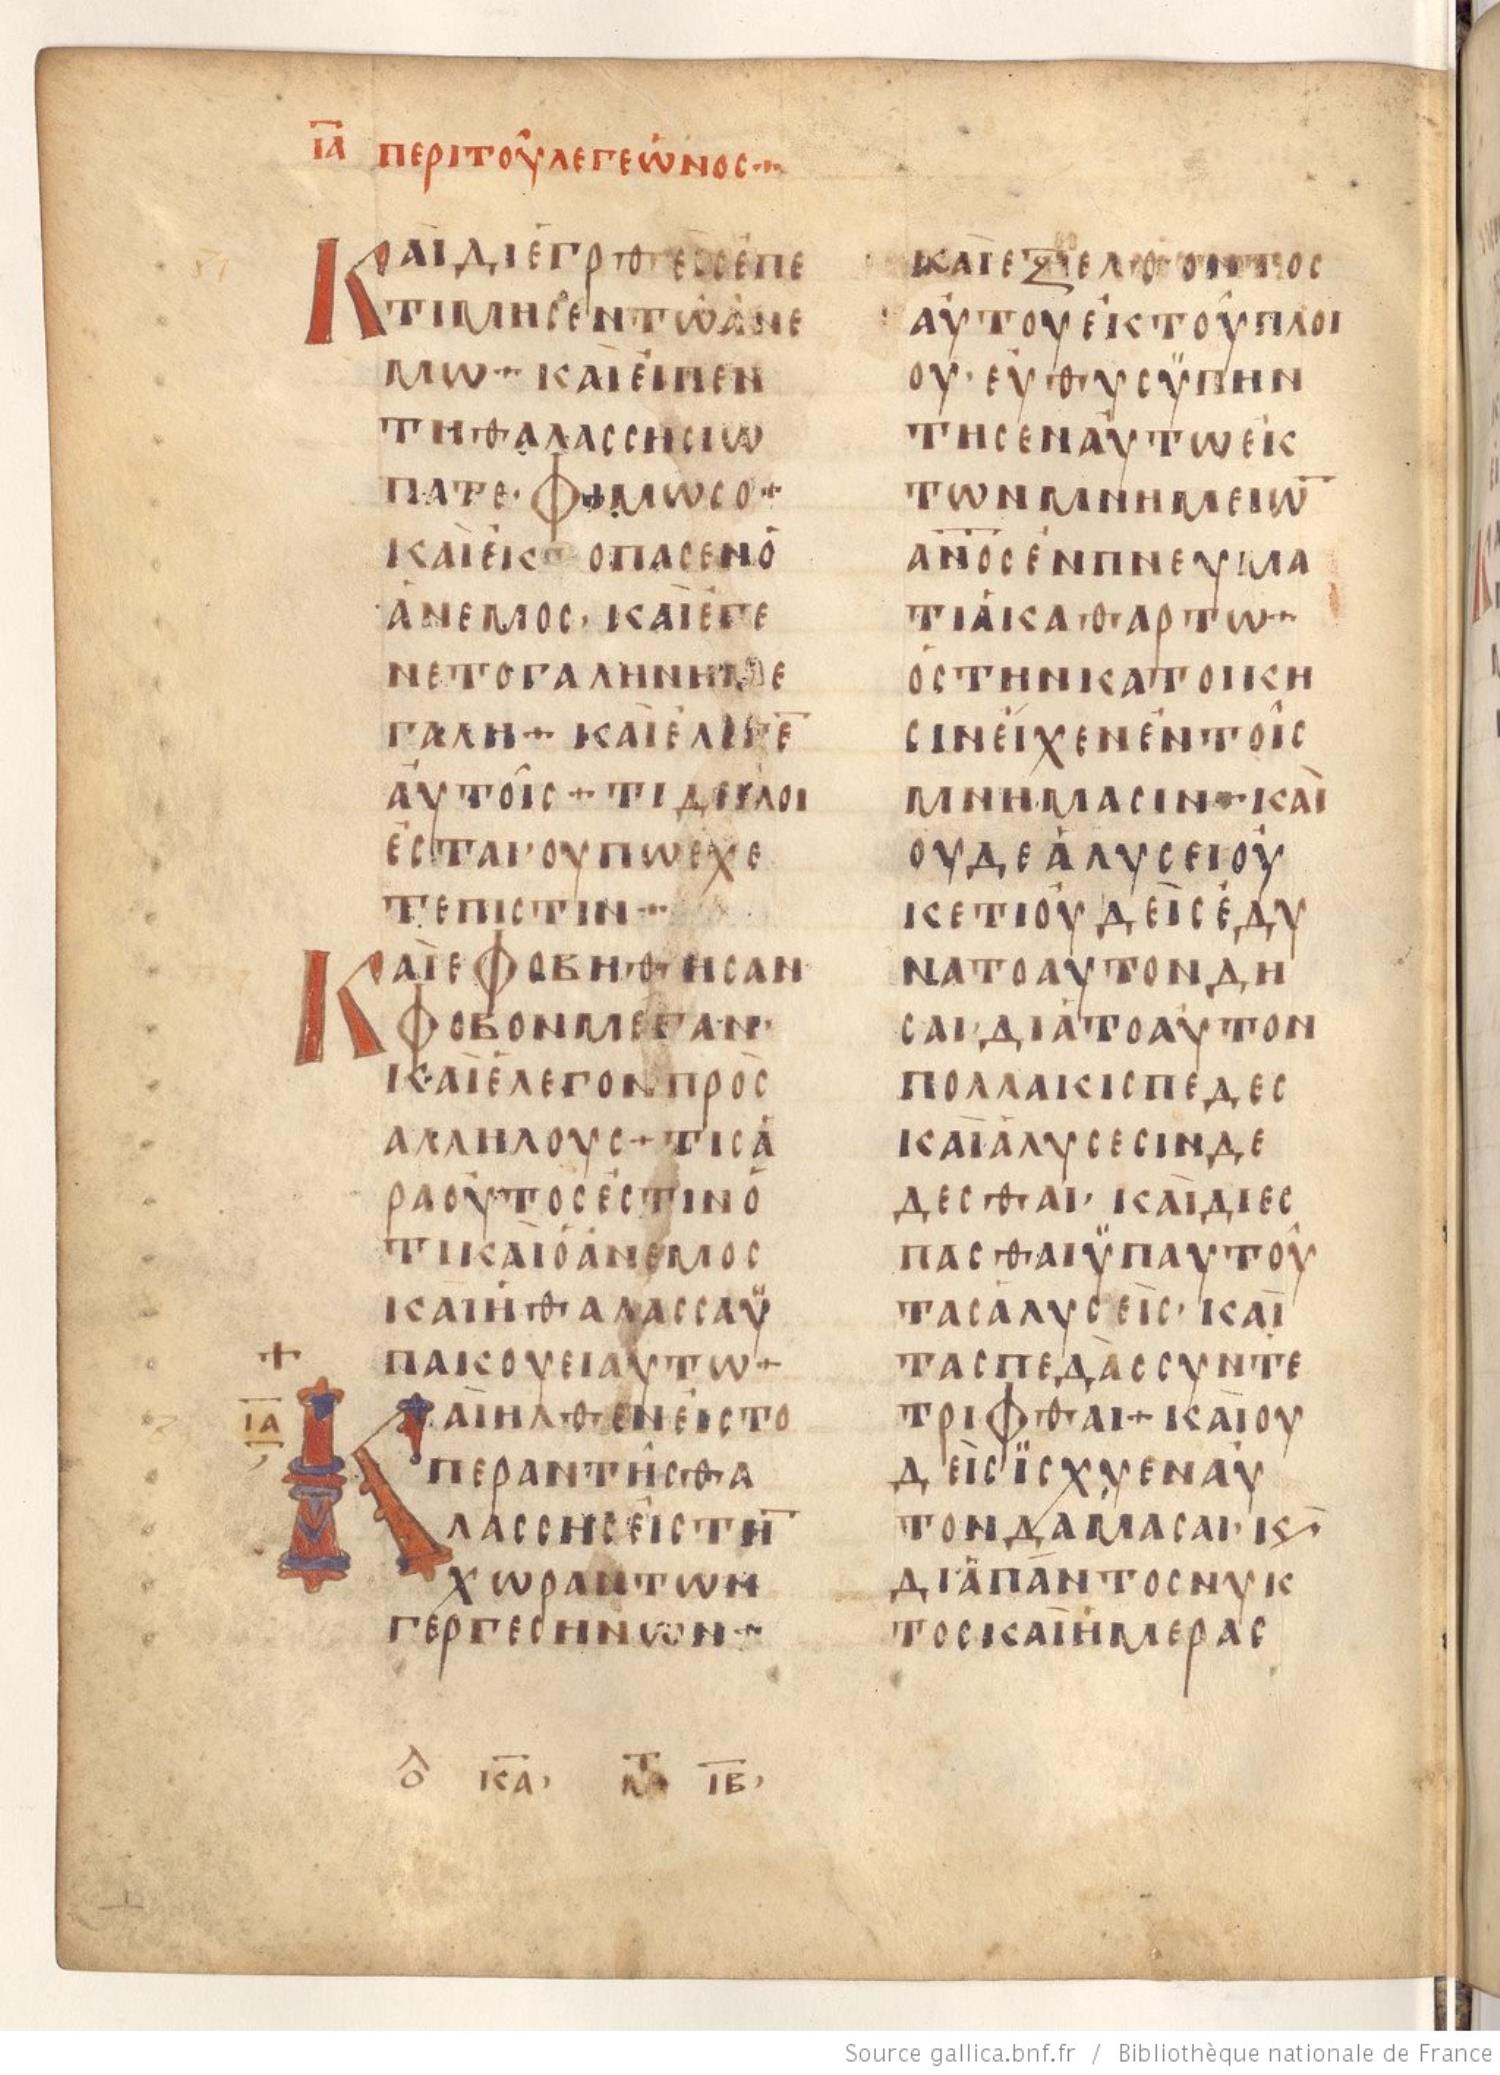 ΙΑ ΠΕΡΙ ΤΟΥ ΛΕΓΕΩΝΟΣ
ΚΑΙ ΔΙΕΓΕΡΘΕΙΣ ΕΠΕ
ΤΙΜΗΣΕΝ ΤΩ ΑΝΕ
ΜΩ + ΚΑΙ ΕΙΠΕΝ
ΤΗ ΘΑΛΑΣΣΗ ΣΙΩ
ΠΑΤΕ · ΦΙΜΩΣΟ +
ΚΑΙ ΕΚΟΠΑΣΕΝ Ο
ΑΝΕΜΟΣ · ΚΑΙ ΕΓΕ
ΝΕΤΟ ΓΑΛΗΝΗ ΜΕ
ΓΑΛΗ + ΚΑΙ ΕΛΕΓΕ̅
ΑΥΤΟΙΣ + ΤΙ ΔΕΙΛΟΙ
ΕΣΤΑΙ · ΟΥΠΩ ΕΧΕ
ΤΕ ΠΙΣΤΙΝ +
ΚΑΙ ΕΦΟΒΗΘΗΣΑΝ
ΦΟΒΟΝ ΜΕΓΑΝ ·
ΚΑΙ ΕΛΕΓΟΝ ΠΡΟΣ
ΑΛΛΗΛΟΥΣ + ΤΙΣ Α
ΡΑ ΟΥΤΟΣ ΕΣΤΙΝ Ο
ΤΙ ΚΑΙ Ο ΑΝΕΜΟΣ
ΚΑΙ Η ΘΑΛΑΣΣΑ Ϋ
ΠΑΚΟΥΕΙ ΑΥΤΩ +
+
ΙΑ
ΚΑΙ ΗΛΘΕΝ ΕΙΣ ΤΟ
ΠΕΡΑΝ ΤΗΣ ΘΑ
ΛΑΣΣΗΣ ΕΙΣ ΤΗ̅
ΧΩΡΑΝ ΤΩΝ
ΓΕΡΓΕΣΗΝΩΝ +
ΚΑΙ ΕΞΕΛΘΟΝΤΟΣ
ΑΥΤΟΥ ΕΚ ΤΟΥ ΠΛΟΙ
ΟΥ · ΕΥΘΥΣ ΫΠΗΝ
ΤΗΣΕΝ ΑΥΤΩ ΕΚ
ΤΩΝ ΜΝΗΜΕΙΩ̅
Α̅Ν̅Ο̅Σ ΕΝ ΠΝΕΥΜΑ
ΤΙ ΑΚΑΘΑΡΤΩ +
ΟΣ ΤΗΝ ΚΑΤΟΙΚΗ
ΣΙΝ ΕΙΧΕΝ ΕΝ ΤΟΙΣ
ΜΝΗΜΑΣΙΝ + ΚΑΙ
ΟΥΔΕ ΑΛΥΣΕΙ ΟΥ
ΚΕΤΙ ΟΥΔΕΙΣ ΕΔΥ
ΝΑΤΟ ΑΥΤΟΝ ΔΗ
ΣΑΙ · ΔΙΑ ΤΟ ΑΥΤΟΝ
ΠΟΛΛΑΚΙΣ ΠΕΔΕΣ
ΚΑΙ ΑΛΥΣΕΣΙΝ ΔΕ
ΔΕΣΘΑΙ · ΚΑΙ ΔΙΕΣ
ΠΑΣΘΑΙ ΫΠ ΑΥΤΟΥ
ΤΑΣ ΑΛΥΣΕΙΣ · ΚΑΙ
ΤΑΣ ΠΕΔΑΣ ΣΥΝΤΕ
ΤΡΙΦΘΑΙ + ΚΑΙ ΟΥ
ΔΕΙΣ ΪΣΧΥΕΝ ΑΥ
ΤΟΝ ΔΑΜΑΣΑΙ · Κϗ
ΔΙΑ ΠΑΝΤΟΣ ΝΥΚ
ΤΟΣ ΚΑΙ ΗΜΕΡΑΣ
ΚΑ ΙΒ
Source gallica.bnf.fr / Bibliothèque nationale de France